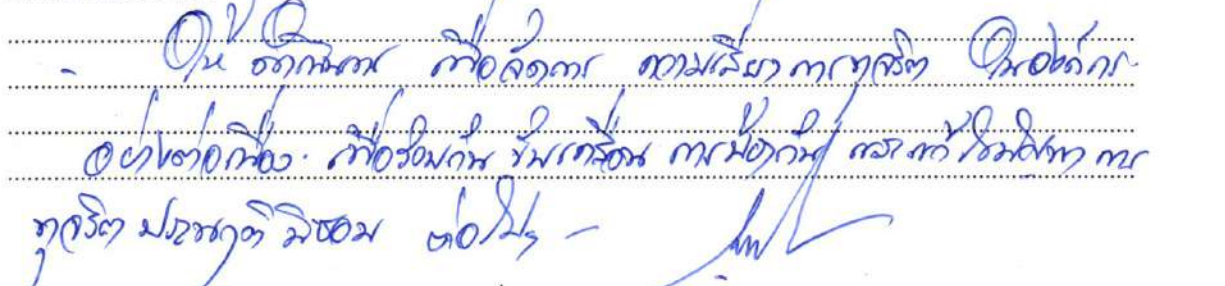 - ให้ ดำเนินงาน เพื่อจัดการ ความเสี่ยง การทุจริต ในองค์กร
อย่างต่อเนื่อง เพื่อร่วมกัน ขับเคลื่อน การป้องกัน และ แก้ไขปัญหา การ
ทุจริต ประพฤติ มิชอบ ต่อไป -